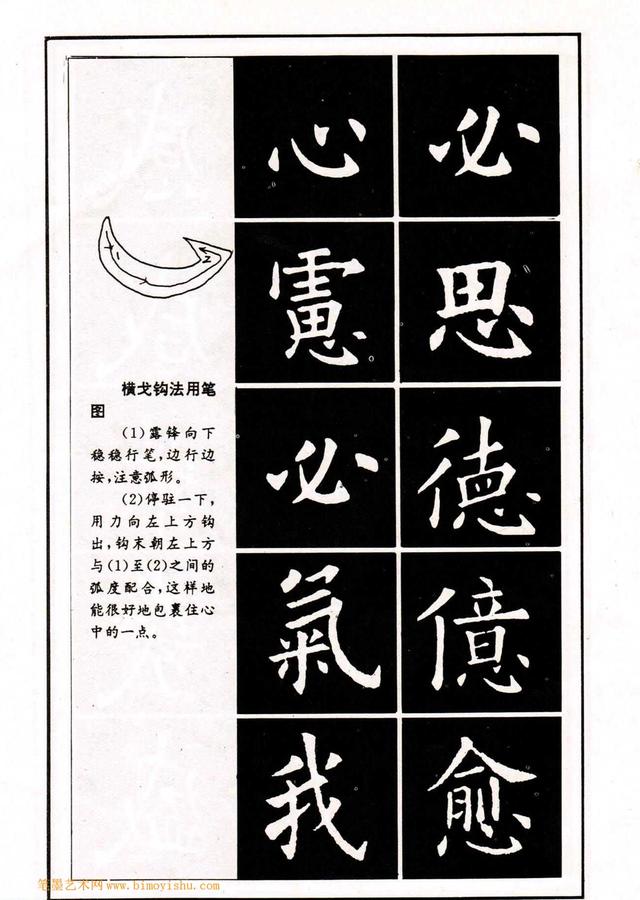 必
思
德
億
愈
心
慮
必
氣
我
横戈钩法用笔
图
(1)露锋向下
稳稳行笔,边行边
按,注意弧形。
(2)停驻一下,
用力向左上方钩
出,钩末朝左上方
与(1)至(2)之间的
弧度配合,这样地
能很好地包裹住心
中的一点。
笔墨艺术网www.bimoyishu.com